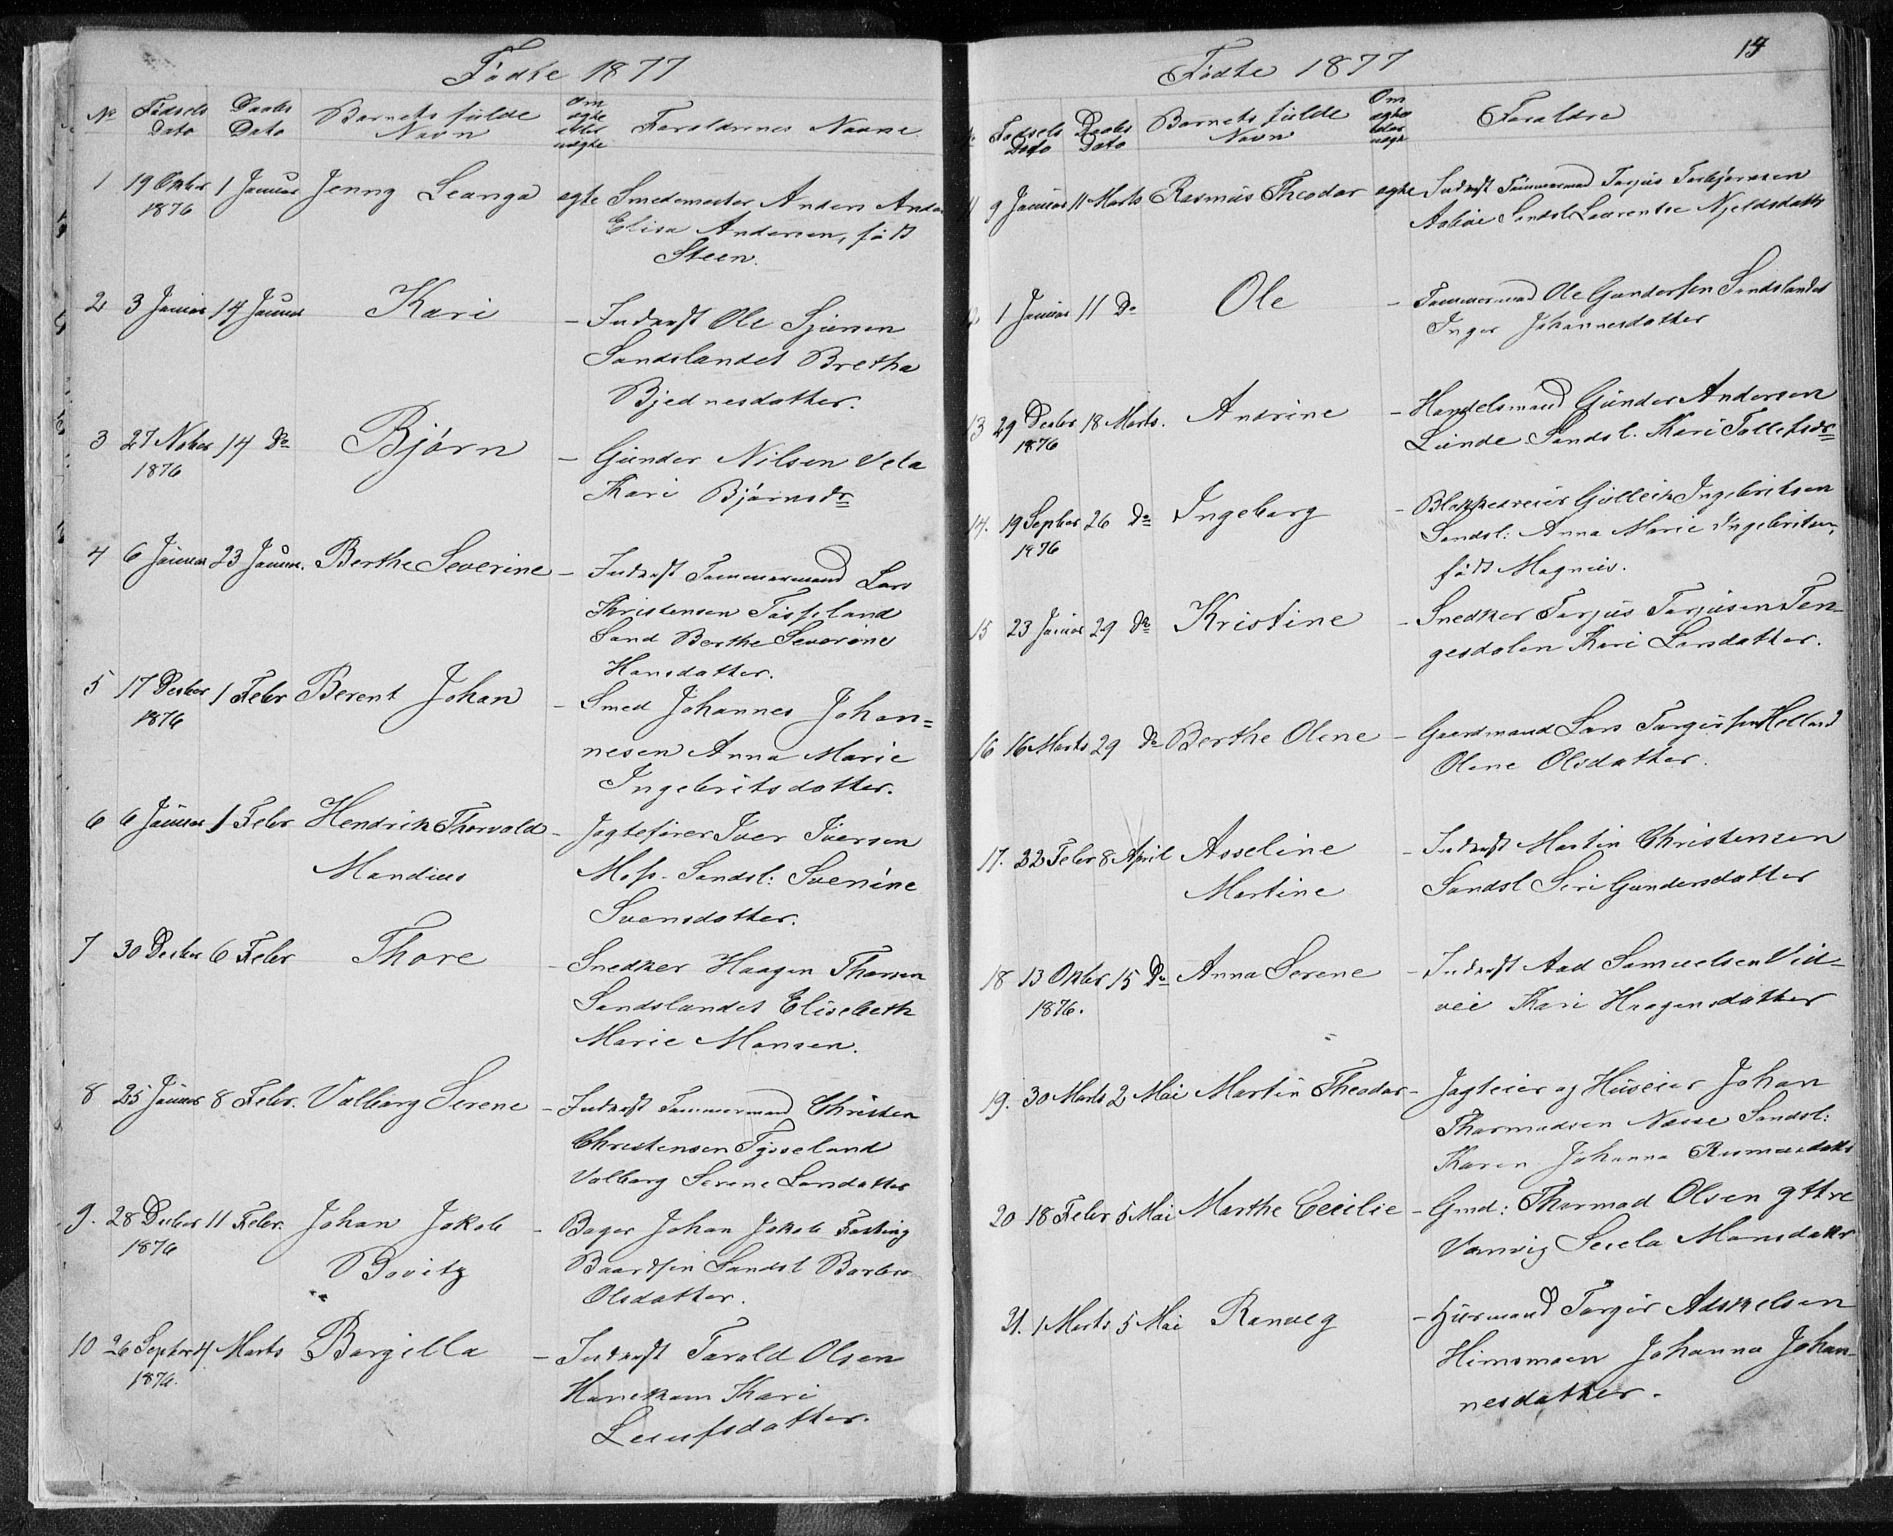 Fødte 1877
No Fødsels Dato Daabs Dato Barnets fulde Navn Om ægte eller uægte Forældrenes Navne
1 19 Oktbr 1 Januar Jenny Leanga ægte Smedemester Anders Ander
1876 Elisa Andersen, født
Steen.
2 3 Januar 14 Januar Kari - Indrsft Ole Sjursen
Sandslandet Bretha
Bjednesdatter.
3 27 Novbr 14 Do Bjørn - Gunder Nilsen Vela
1876 Kari Bjørnsdr
4 6 Januar 23 Januar. Berthe Severine - Indrsft Tømmermand Lars
Kristensen Tøsseland
Sand Berthe Severine
Hansdatter.
5 17 Decbr 1 Febr Berent Johan - Smed Johannes Johan=
1876 nesen Anna Marie
Ingebritsdatter.
6 6 Januar 1 Febr Hendrik Thorvald - Jagtefører Iver Iversen
Mandius Moss. Sandsl: Sverine
Svensdatter.
7 30 Decbr 6 Febr Thore - Snedker Haagen Thorsen
Sandslandet Elisebeth
Marie Monsen.
8 25 Januar 8 Febr. Valborg Serene - Indrsft Tømmermand Christen
Christensen Tysseland
Valborg Serene Larsdatter
9. 28 Decbr 11 Febr. Johan Jakob - Bager Johan Jakob Fasting
1876 Bovitz Baardsen Sandsl Barbro
Olsdatter.
10 26 Septbr 4 Marts Borgilla - Indrsft Tarald Olsen
1876. Hanekam Kari
Leuifsdatter.
Fødte 1877
No Fødsels Dato Daabs Dato Barnets fulde Navn Om ægte eller uægte Forældre
11 9 Januar 11 Marts Rasmus Theodor ægte Indrsft Tømmermand Tarjus Torbjørnsen
Aabøe Sandsl Laurentse Njeldsdatter
12 1 Januar 11 Do Ole - Tømmermand Ole Gundersen Sandslandet
Inger Johannesdatter
13 29 Decbr 18 Marts. Andrine - Handelsmand Gunder Andersen
1876 Lunde Sandsl. Kari Tollefsdr
14. 19 Septbr 26 Do Ingeborg - Blokkedreier Gulleik Ingebritsen
1876 Sandsl: Anna Marie Ingebritsen,
født Magnus.
15 23 Januar 29 Do Kristine - Snedker Tarjus Tarjusen Ten-
gesdalen Kari Larsdatter.
16 16 Marts 29 Do Berthe Olene - Gaardmand Lars Torgersen Helland
Olene Olsdatter.
17. 22 Febr 8 April Asseline - Indrsft Martin Christensen
Martine Sandsl Siri Gundersdatter
18 13 Oktbr 15 Do Anna Serene - Indrsft Aad Samuelsen Vid-
1876. veie Kari Haagensdatter
19. 30 Marts 2 Mai Martin Theodor - Jagteier og Huseier Johan
Thormodsen Næsse Sandsl:
Karen Johanna Rasmusdatter
20 18 Febr 5 Mai Marthe Cecilie - Gmd: Thormod Olsen yttre
Vanvig Secela Monsdatter
21. 1 Marts 5 Mai Ranveg - Husmand Torger Adskelsen
Himsmoen Johanna Johan-
nesdatter.